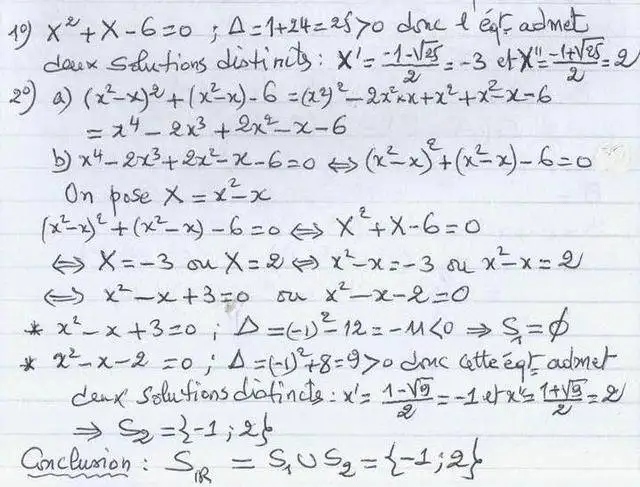 1°) X² + X - 6 = 0 ; Δ = 1 + 24 = 25 > 0 donc l'éqt. admet
deux solutions distincts : X' = (-1-√25)/2 = -3 et X'' = (-1+√25)/2 = 2
2°) a) (x²-x)² + (x²-x) - 6 = (x²)² - 2x²×x + x² + x² - x - 6
= x⁴ - 2x³ + 2x² - x - 6
b) x⁴ - 2x³ + 2x² - x - 6 = 0 ⇔ (x²-x)² + (x²-x) - 6 = 0
On pose X = x² - x
(x²-x)² + (x²-x) - 6 = 0 ⇔ X² + X - 6 = 0
⇔ X = -3 ou X = 2 ⇔ x² - x = -3 ou x² - x = 2
⇔ x² - x + 3 = 0 ou x² - x - 2 = 0
* x² - x + 3 = 0 ; Δ = (-1)² - 12 = -11 < 0 ⇒ S₁ = ∅
* x² - x - 2 = 0 ; Δ = (-1)² + 8 = 9 > 0 donc cette éqt. admet
deux solutions distincts : x' = (1-√9)/2 = -1 et x'' = (1+√9)/2 = 2
⇒ S₂ = {-1 ; 2}
Conclusion : S_ℝ = S₁ ∪ S₂ = {-1 ; 2}